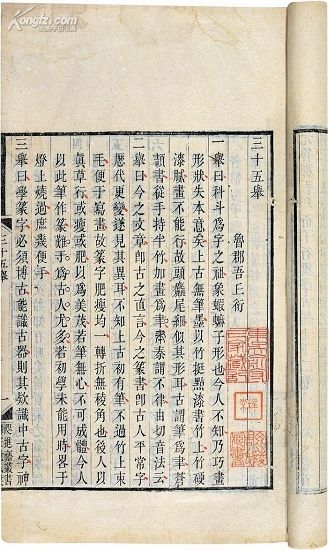 Kongfz.com
三十五舉
魯郡吾丘衍
一舉曰科斗為字之祖象蝦蟆子形也今人不知乃巧畫
形狀失本意矣上古無筆墨以竹挺點漆書竹上竹硬
漆膩畫不能行故頭麤尾細似其形耳古謂筆為聿蒼
頡書從手持半竹加畫為聿秦謂不律由切音法云
二舉曰今之文章即古之直言今之篆書即古人平常字
歷代更變遂見其異耳不知上古初有筆不過竹上束
毛便于寫畫故篆字肥瘦均一轉折無稜角也後人以
真草行或瘦或肥以為美茂若筆無心不可成體今人
以此筆作篆難于為古人尤多若初學未能用時略于
燈上燒過庶幾便手
三舉曰學篆字必須博古能識古器則其款識中古字神
三十五舉
一
咫進齋叢書